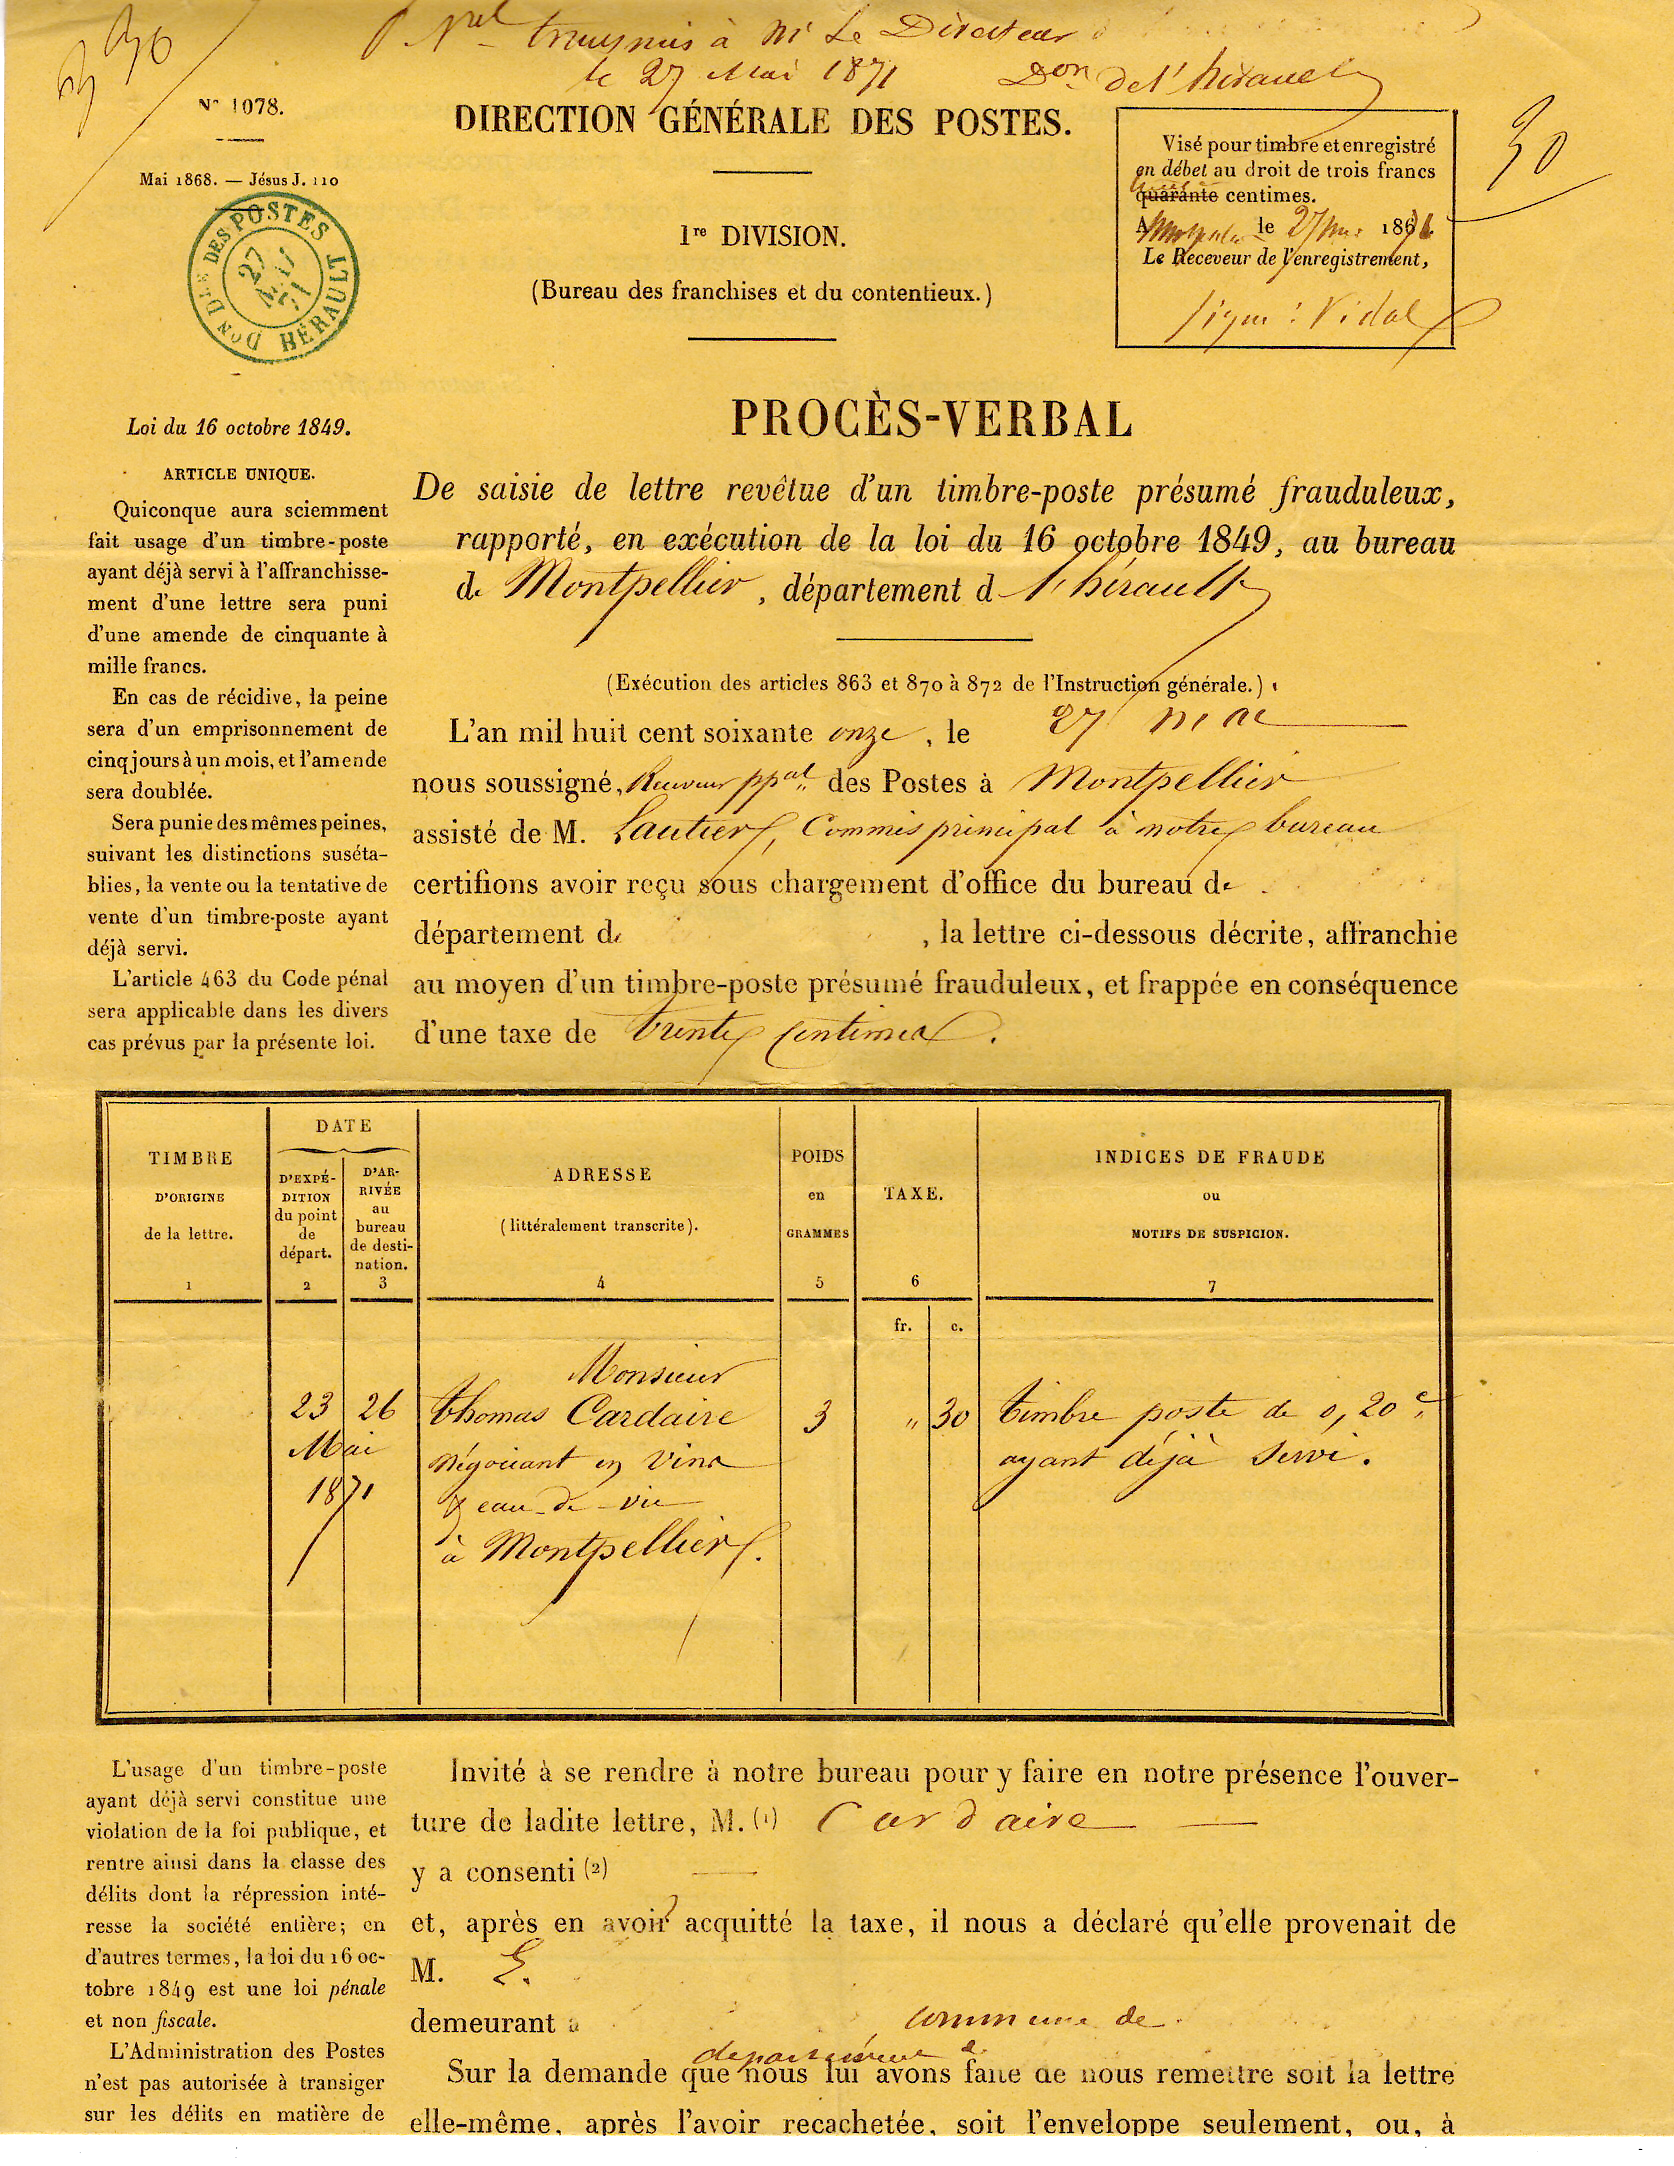 le 27 Mai 1871 Don de l'hérault
N° 1078.
Mai 1868. — Jésus J. 110
DON DES POSTES HÉRAULT
27 MAI 71
DIRECTION GÉNÉRALE DES POSTES.
1re DIVISION.
(Bureau des franchises et du contentieux.)
Visé pour timbre et enregistré
en débet au droit de trois francs
quarante centimes.
A Montpellier le 27 mai 1871
Le Receveur de l'enregistrement,
signé : Vidal
30
Loi du 16 octobre 1849.
ARTICLE UNIQUE.
Quiconque aura sciemment
fait usage d'un timbre-poste
ayant déjà servi à l'affranchisse-
ment d'une lettre sera puni
d'une amende de cinquante à
mille francs.
En cas de récidive, la peine
sera d'un emprisonnement de
cinq jours à un mois, et l'amende
sera doublée.
Sera punie des mêmes peines,
suivant les distinctions suséta-
blies, la vente ou la tentative de
vente d'un timbre-poste ayant
déjà servi.
L'article 463 du Code pénal
sera applicable dans les divers
cas prévus par la présente loi.
PROCÈS-VERBAL
De saisie de lettre revêtue d'un timbre-poste présumé frauduleux,
rapporté, en exécution de la loi du 16 octobre 1849, au bureau
de Montpellier, département d l'hérault
(Exécution des articles 863 et 870 à 872 de l'Instruction générale.)
L'an mil huit cent soixante onze, le 27 mai
nous soussigné, Receveur ppal des Postes à Montpellier
assisté de M. Lautier, Commis principal à notre bureau
certifions avoir reçu sous chargement d'office du bureau de
département de , la lettre ci-dessous décrite, affranchie
au moyen d'un timbre-poste présumé frauduleux, et frappée en conséquence
d'une taxe de trente centimes.
TIMBRE
D'ORIGINE
de la lettre.
1
DATE
D'EXPÉ-
DITION
du point
de
départ.
2
D'AR-
RIVÉE
au
bureau
de desti-
nation.
3
ADRESSE
(littéralement transcrite).
4
POIDS
en
GRAMMES
5
TAXE.
6
INDICES DE FRAUDE
ou
MOTIFS DE SUSPICION.
7
fr. c.
Monsieur
23 26 thomas Cardaire 3 " 30 timbre poste de 0,20 c.
Mai négociant en vins ayant déjà servi.
1871 & eau-de-vie
à Montpellier.
L'usage d'un timbre-poste
ayant déjà servi constitue une
violation de la foi publique, et
rentre ainsi dans la classe des
délits dont la répression inté-
resse la société entière; en
d'autres termes, la loi du 16 oc-
tobre 1849 est une loi pénale
et non fiscale.
L'Administration des Postes
n'est pas autorisée à transiger
sur les délits en matière de
Invité à se rendre à notre bureau pour y faire en notre présence l'ouver-
ture de ladite lettre, M. (1) Cardaire
y a consenti (2)
et, après en avoir acquitté la taxe, il nous a déclaré qu'elle provenait de
M. E.
demeurant à , commune de
département d
Sur la demande que nous lui avons faite de nous remettre soit la lettre
elle-même, après l'avoir recachetée, soit l'enveloppe seulement, ou, à